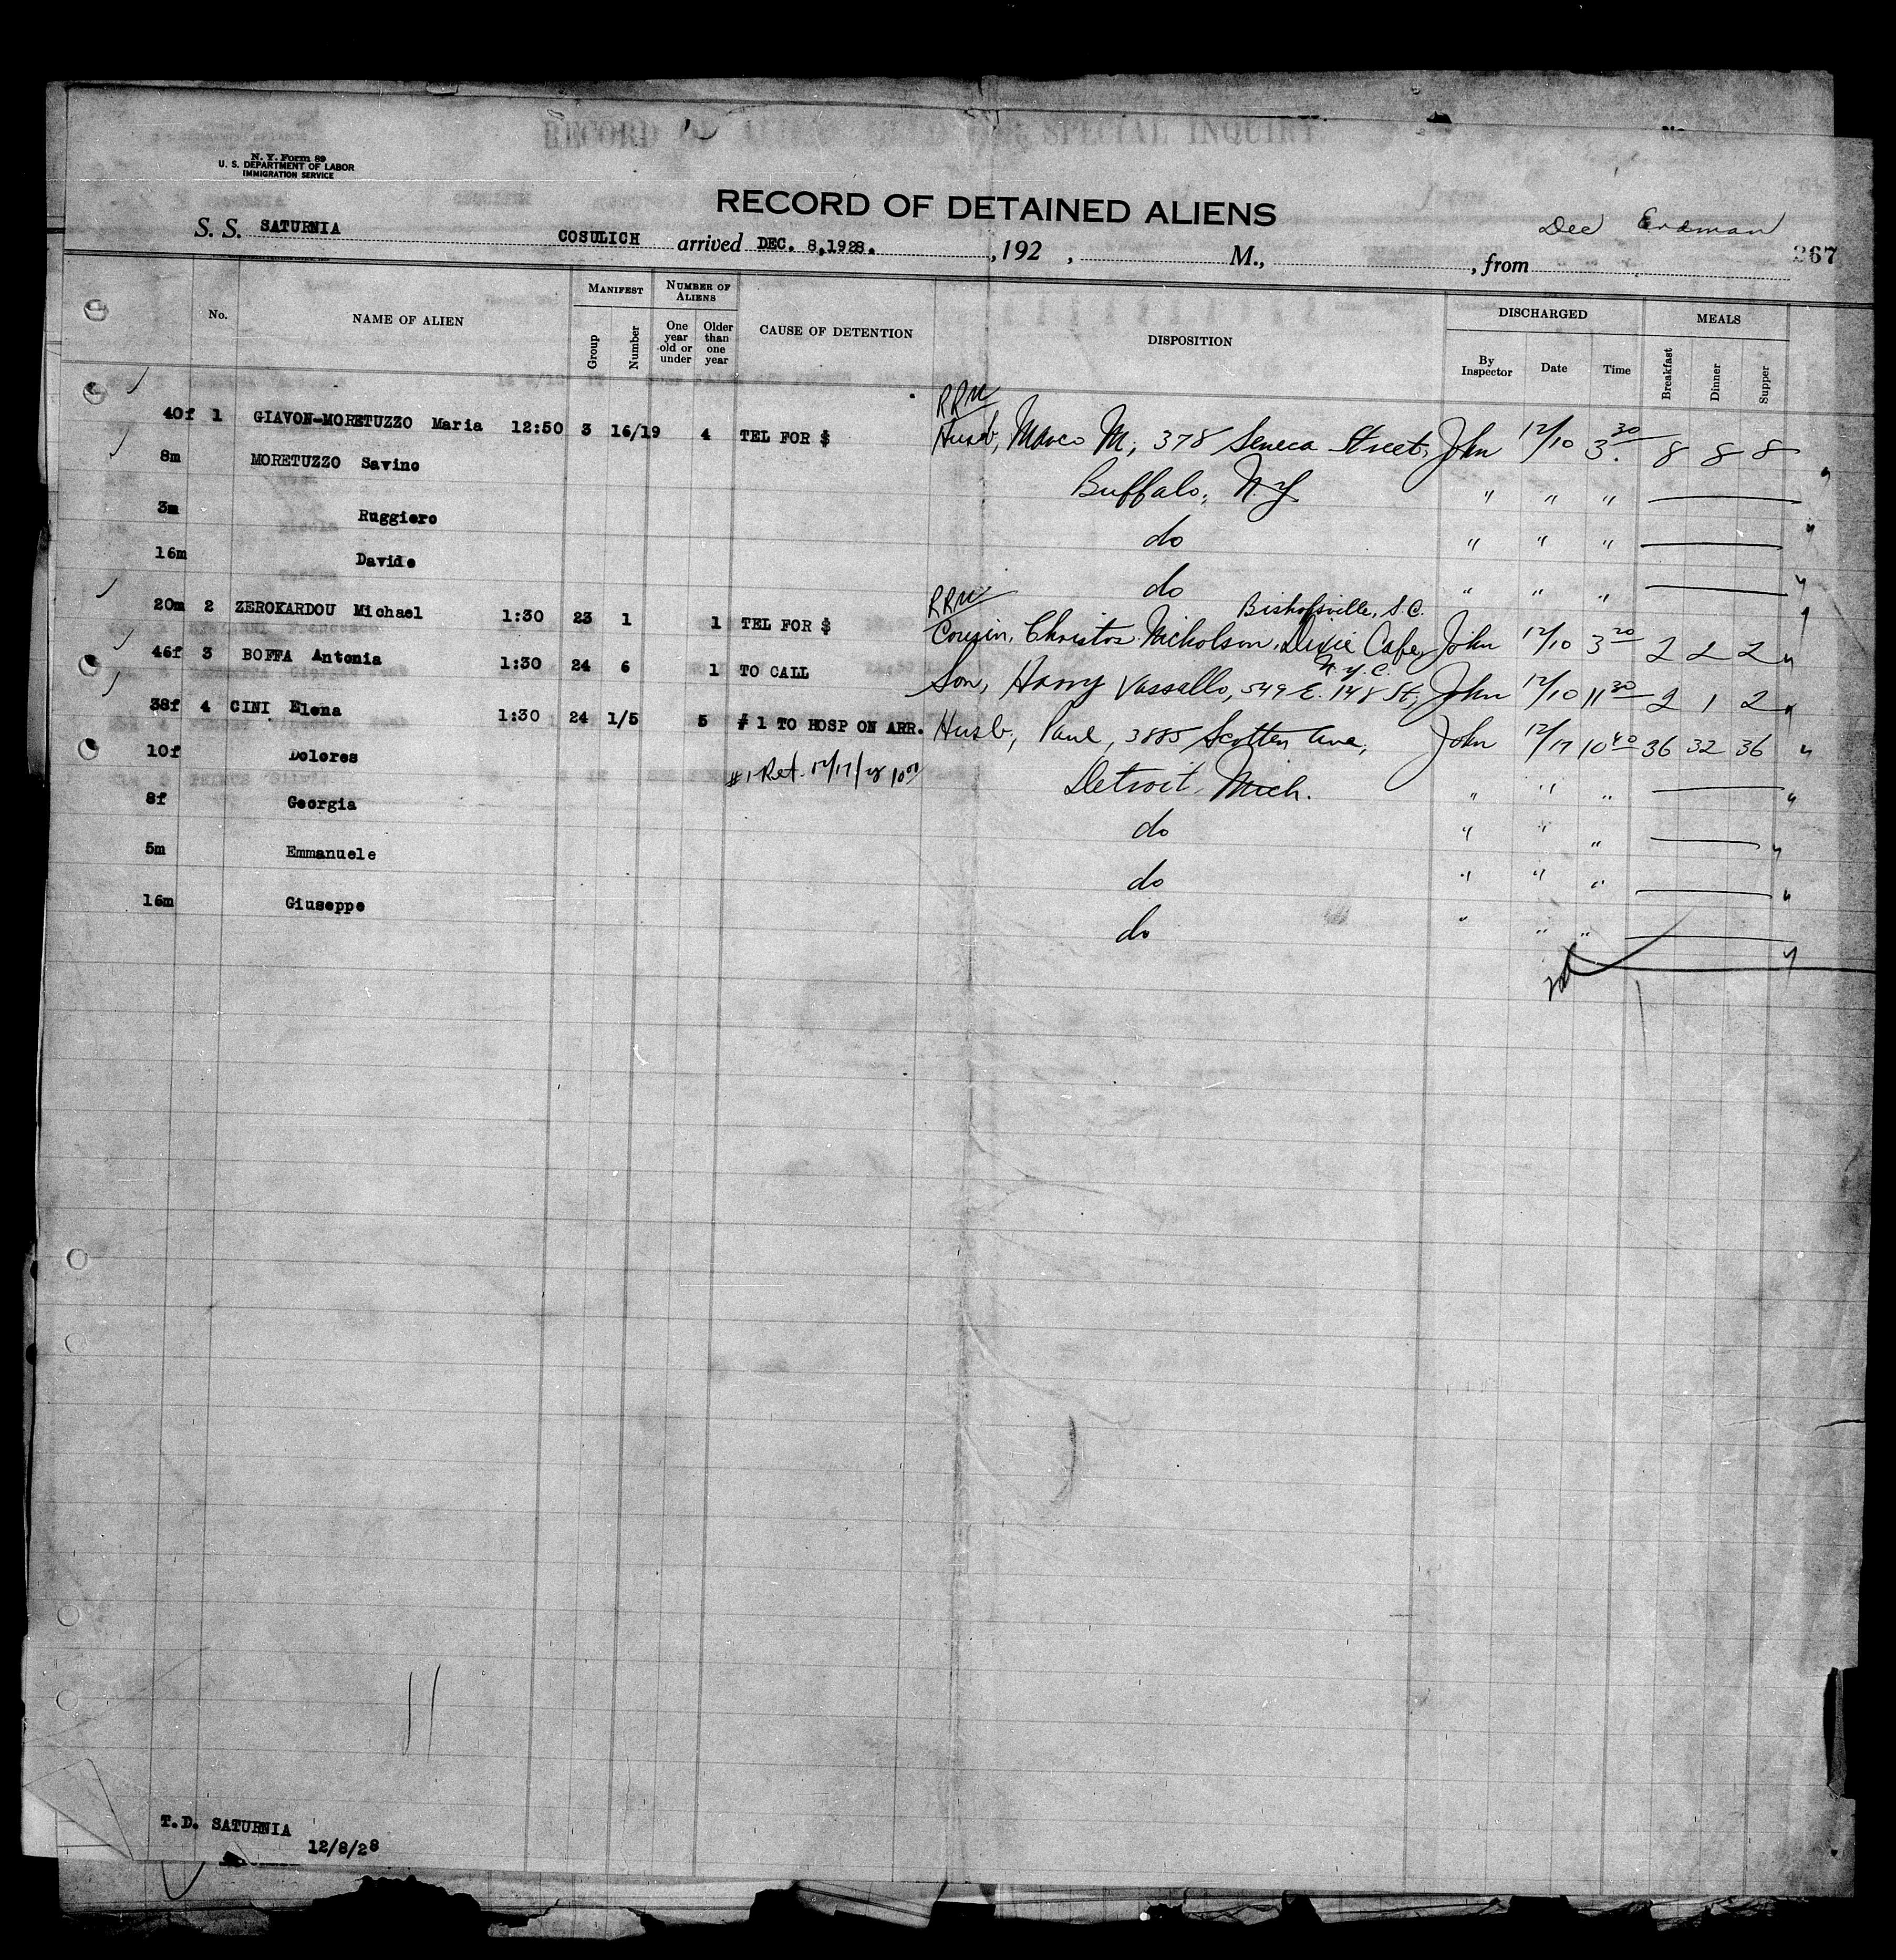 N. Y. Form 89
U. S. DEPARTMENT OF LABOR
IMMIGRATION SERVICE
RECORD OF DETAINED ALIENS
Dee Erdman
S. S. SATURNIA COSULICH arrived DEC. 8,1928. , 192 , M., , from 267
No. NAME OF ALIEN MANIFEST Group Number NUMBER OF ALIENS One year old or under Older than one year CAUSE OF DETENTION DISPOSITION DISCHARGED By Inspector Date Time MEALS Breakfast Dinner Supper
RRM
40f 1 GIAVON-MORETUZZO Maria 12:50 3 16/19 4 TEL FOR $ Husb, Marco M, 378 Seneca Street, John 12/10 3.30 8 8 8
8m MORETUZZO Savino Buffalo, N.Y. " " "
3m Ruggiero do " " "
16m Davide do " " "
RRM Bishopville, S.C.
20m 2 ZEROKARDOU Michael 1:30 23 1 1 TEL FOR $ Cousin, Christos Nicholson, Dixie Cafe, John 12/10 3 20 2 2 2 "
N.Y.C.
46f 3 BOFFA Antonia 1:30 24 6 1 TO CALL Son, Harry Vassallo, 549 E. 148 St, John 12/10 11 30 2 1 2 "
38f 4 CINI Elena 1:30 24 1/5 5 # 1 TO HOSP ON ARR. Husb, Paul, 3885 Scotten Ave, John 12/17 10 40 36 32 36 "
10f Dolores #1 Ret. 12/17/28 10 00 Detroit, Mich. " " " "
8f Georgia do " " " "
5m Emmanuele do " " " "
16m Giuseppe do " " " "
T.D. SATURNIA
12/8/28